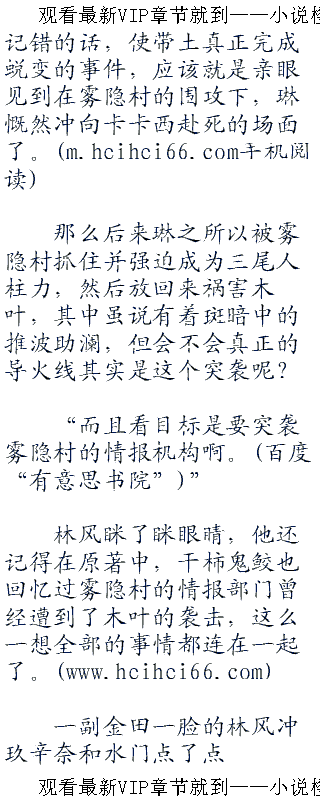 观看最新VIP章节就到——小说检
记错的话，使带土真正完成
蜕变的事件，应该就是亲眼
见到在雾隐村的围攻下，琳
慨然冲向卡卡西赴死的场面
了。(m.hcihci66.com手机阅
读)
那么后来琳之所以被雾
隐村抓住并强迫成为三尾人
柱力，然后放回来祸害木
叶，其中虽说有着斑暗中的
推波助澜，但会不会真正的
导火线其实是这个突袭呢？
“而且看目标是要突袭
雾隐村的情报机构啊。(百度
“有意思书院”)”
林风眯了眯眼睛，他还
记得在原著中，干柿鬼鲛也
回忆过雾隐村的情报部门曾
经遭到了木叶的袭击，这么
一想全部的事情都连在一起
了。(www.hcihci66.com)
一副金田一脸的林风冲
玖辛奈和水门点了点
观看最新VIP章节就到——小说检